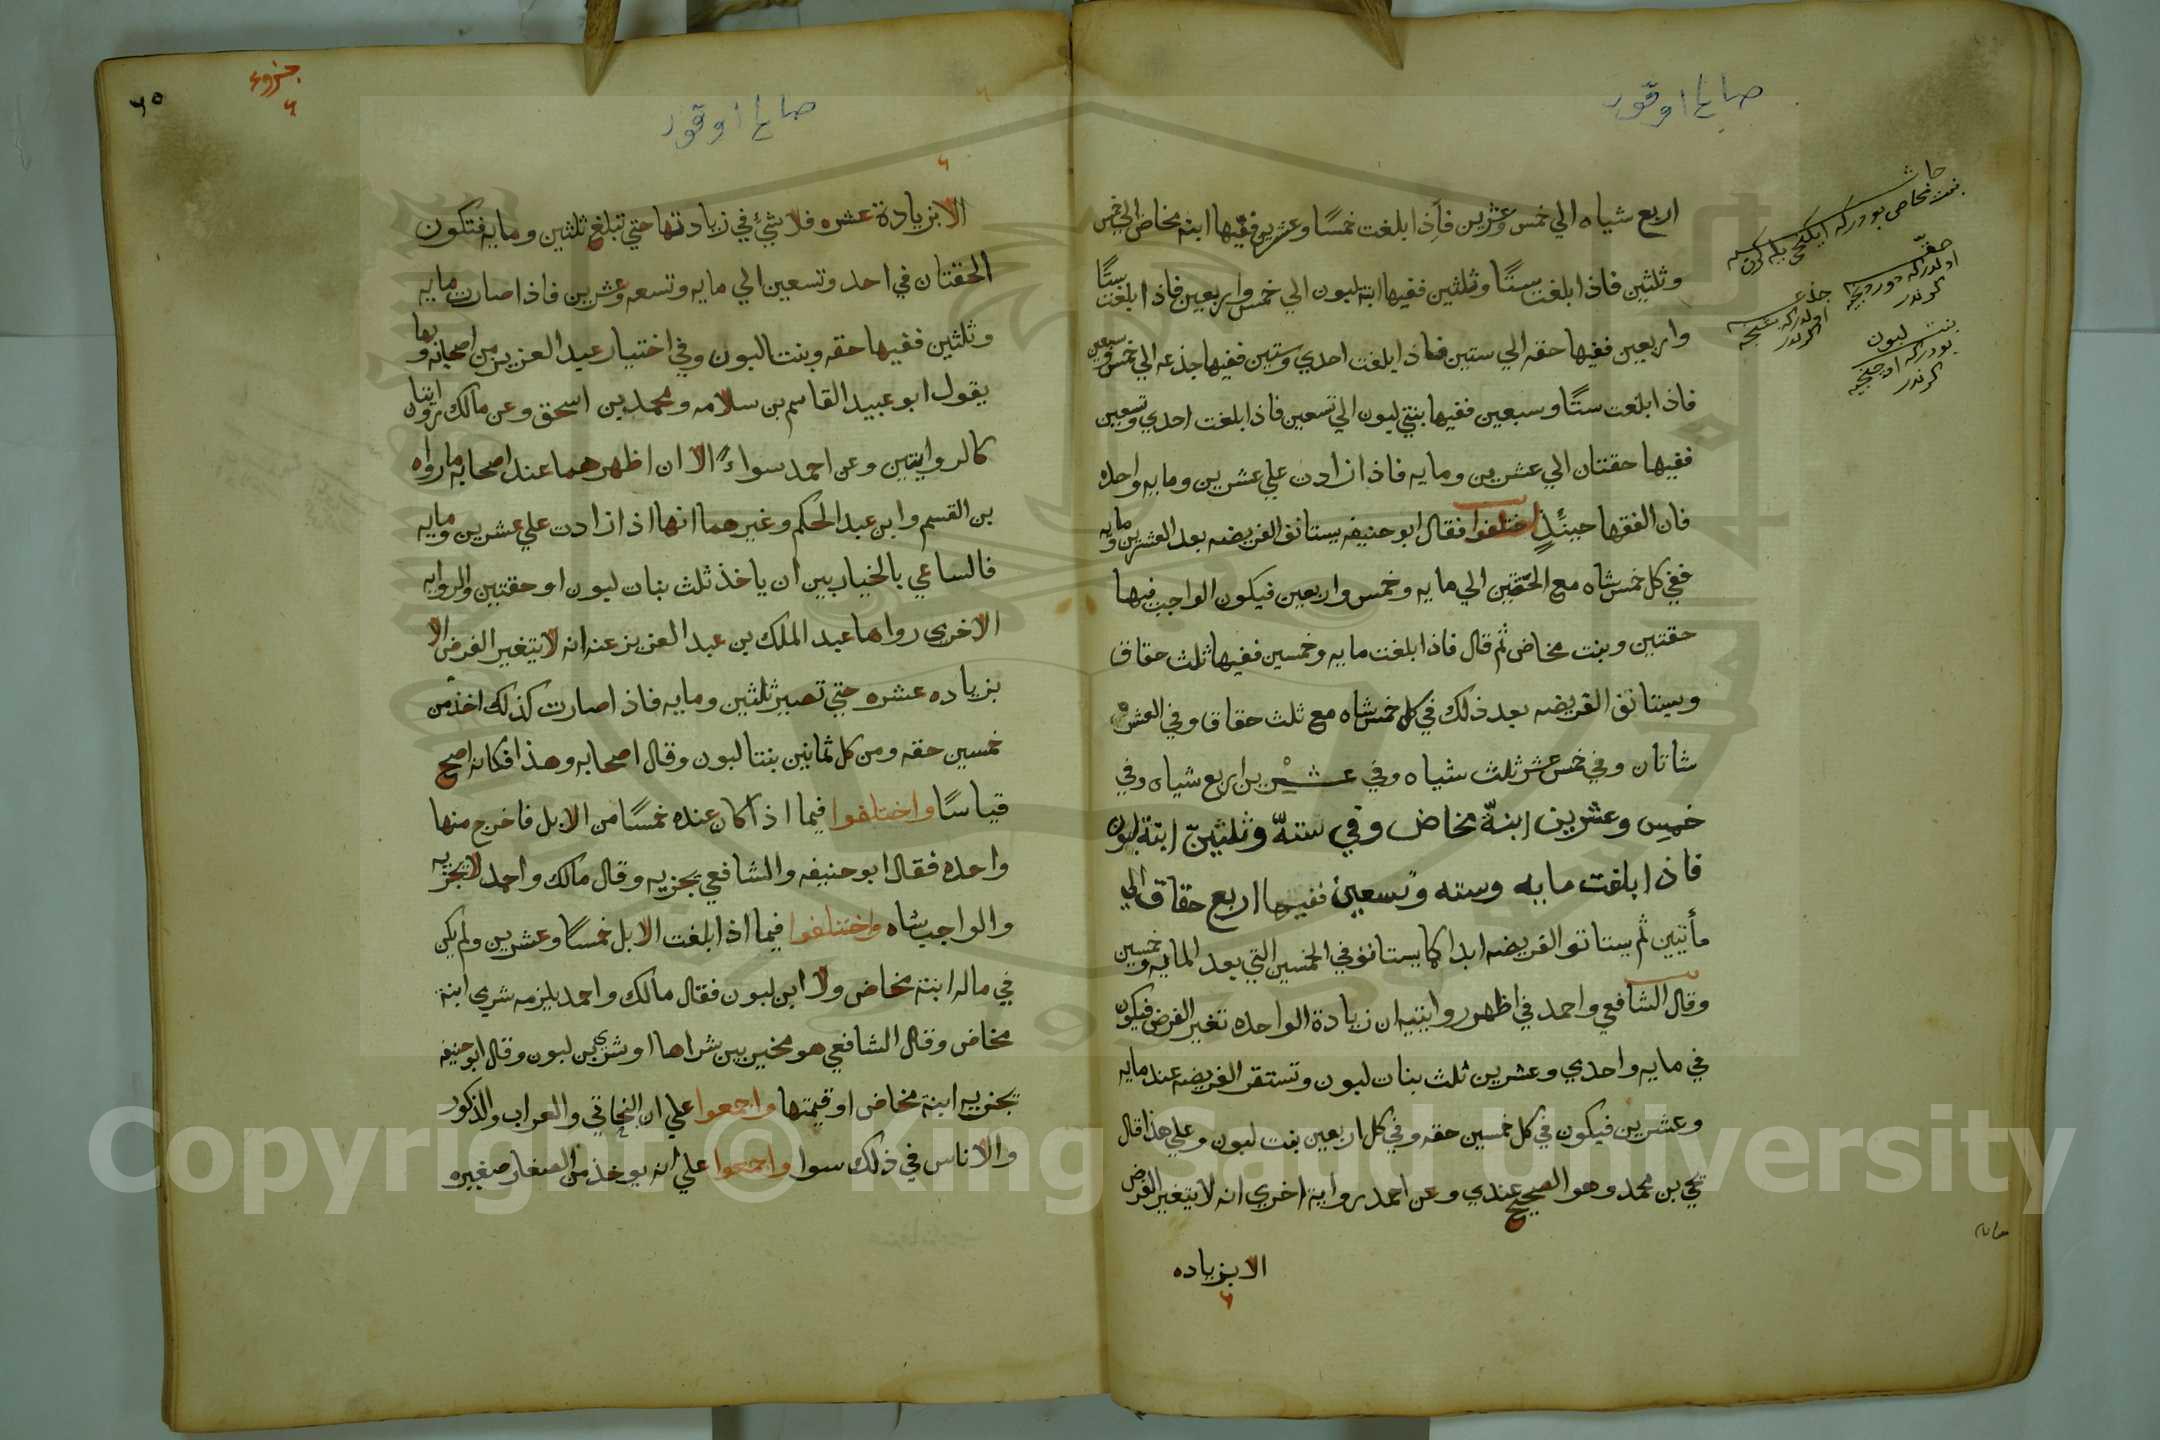 اربع شياه الي خمس وعشرين فاذا بلغت خمسًا وعشرين ففيها ابنة مخاض الي خمس
وثلثين فاذا بلغت ستًا وثلثين ففيها ابنة لبون الي خمس واربعين فاذا بلغت ستًا
واربعين ففيها حقه الي ستين فاذا بلغت احدي وستين ففيها جذعه الي خمس وسبعين
فاذا بلغت ستًا وسبعين ففيها بنتي لبون الي تسعين فاذا بلغت احدي وتسعين
ففيها حقتان الي عشرين ومايه فاذا زادت علي عشرين ومايه واحده
فان الفقها حينئذٍ اختلفوا فقال ابو حنيفه يستانف الفريضه بعد العشرين ومايه
ففي كل خمس شاه مع الحقتين الي مايه وخمس واربعين فيكون الواجب فيها
حقتين وبنت مخاض ثم قال فاذا بلغت مايه وخمسين ففيها ثلث حقاق
ويستانف الفريضه بعد ذلك في كل خمس شاه مع ثلث حقاق وفي العشر
شاتان وفي خمس عشر ثلث شياه وفي عشرين اربع شياه وفي
خمس وعشرين ابنة مخاض وفي ستة وثلثين ابنة لبون
فاذا بلغت مايه وسته وتسعين ففيها اربع حقاق الي
مأتيين ثم يستانف الفريضه ابدا كما يستانف في الخمسين التي بعد المايه وخمسين
وقال الشافعي واحمد في اظهر روايتيه ان زيادة الواحده تغير الفرض فيكون
في مايه واحدي وعشرين ثلث بنات لبون وتستقر الفريضه عند مايه
وعشرين فيكون في كل خمسين حقه وفي كل اربعين بنت لبون وعلي هذا قال
يحي بن محمد وهو الصحيح عندي وعن احمد رواية اخري انه لا يتغير الفرض
الا بزياده
٦
حقه
جذعه
بنت لبون
جزوء
٦
٦٥
الا بزيادة عشره فلا شئ في زيادتها حتي تبلغ ثلثين ومايه فتكون
الحقتان في احد وتسعين الي مايه وتسعه وعشرين فاذا صارت مايه
وثلثين ففيها حقه وبنتا لبون وفي اختيار عبد العزيز من اصحابه وبها
يقول ابو عبيد القاسم بن سلامه ومحمد بن اسحق وعن مالك روايتان
كالروايتين وعن احمد سواءً الا ان اظهرهما عند اصحابه ما رواه
بن القسم وابن عبد الحكم وغيرهما انها اذا زادت علي عشرين ومايه
فالساعي بالخيار بين ان ياخذ ثلث بنات لبون او حقتين والروايه
الاخري رواها عبد الملك بن عبد العزيز عنه انه لا يتغير الفرض الا
بزياده عشره حتي تصير ثلثين ومايه فاذا صارت كذلك اخذ من
خمسين حقه ومن كل ثمانين بنتا لبون وقال اصحابه وهذا فكانه اصح
قياسًا واختلفوا فيما اذا كان عنده خمسًا من الابل فاخرج منها
واحده فقال ابو حنيفه والشافعي يجزيه وقال مالك واحمد لا يجزيه
والواجب شاه واختلفوا فيما اذا بلغت الابل خمسًا وعشرين ولم يكن
في ماله ابنة مخاض ولا ابن لبون فقال مالك واحمد يلزمه شري ابنة
مخاض وقال الشافعي هو مخير بين شراها او شري بن لبون وقال ابو حنيفه
يجزيه ابنة مخاض او قيمتها واجمعوا علي ان البخاتي والعراب والذكور
والاناس في ذلك سوا واجمعوا علي انه يوخذ من الصغار صغيره
Copyright © King Saud University